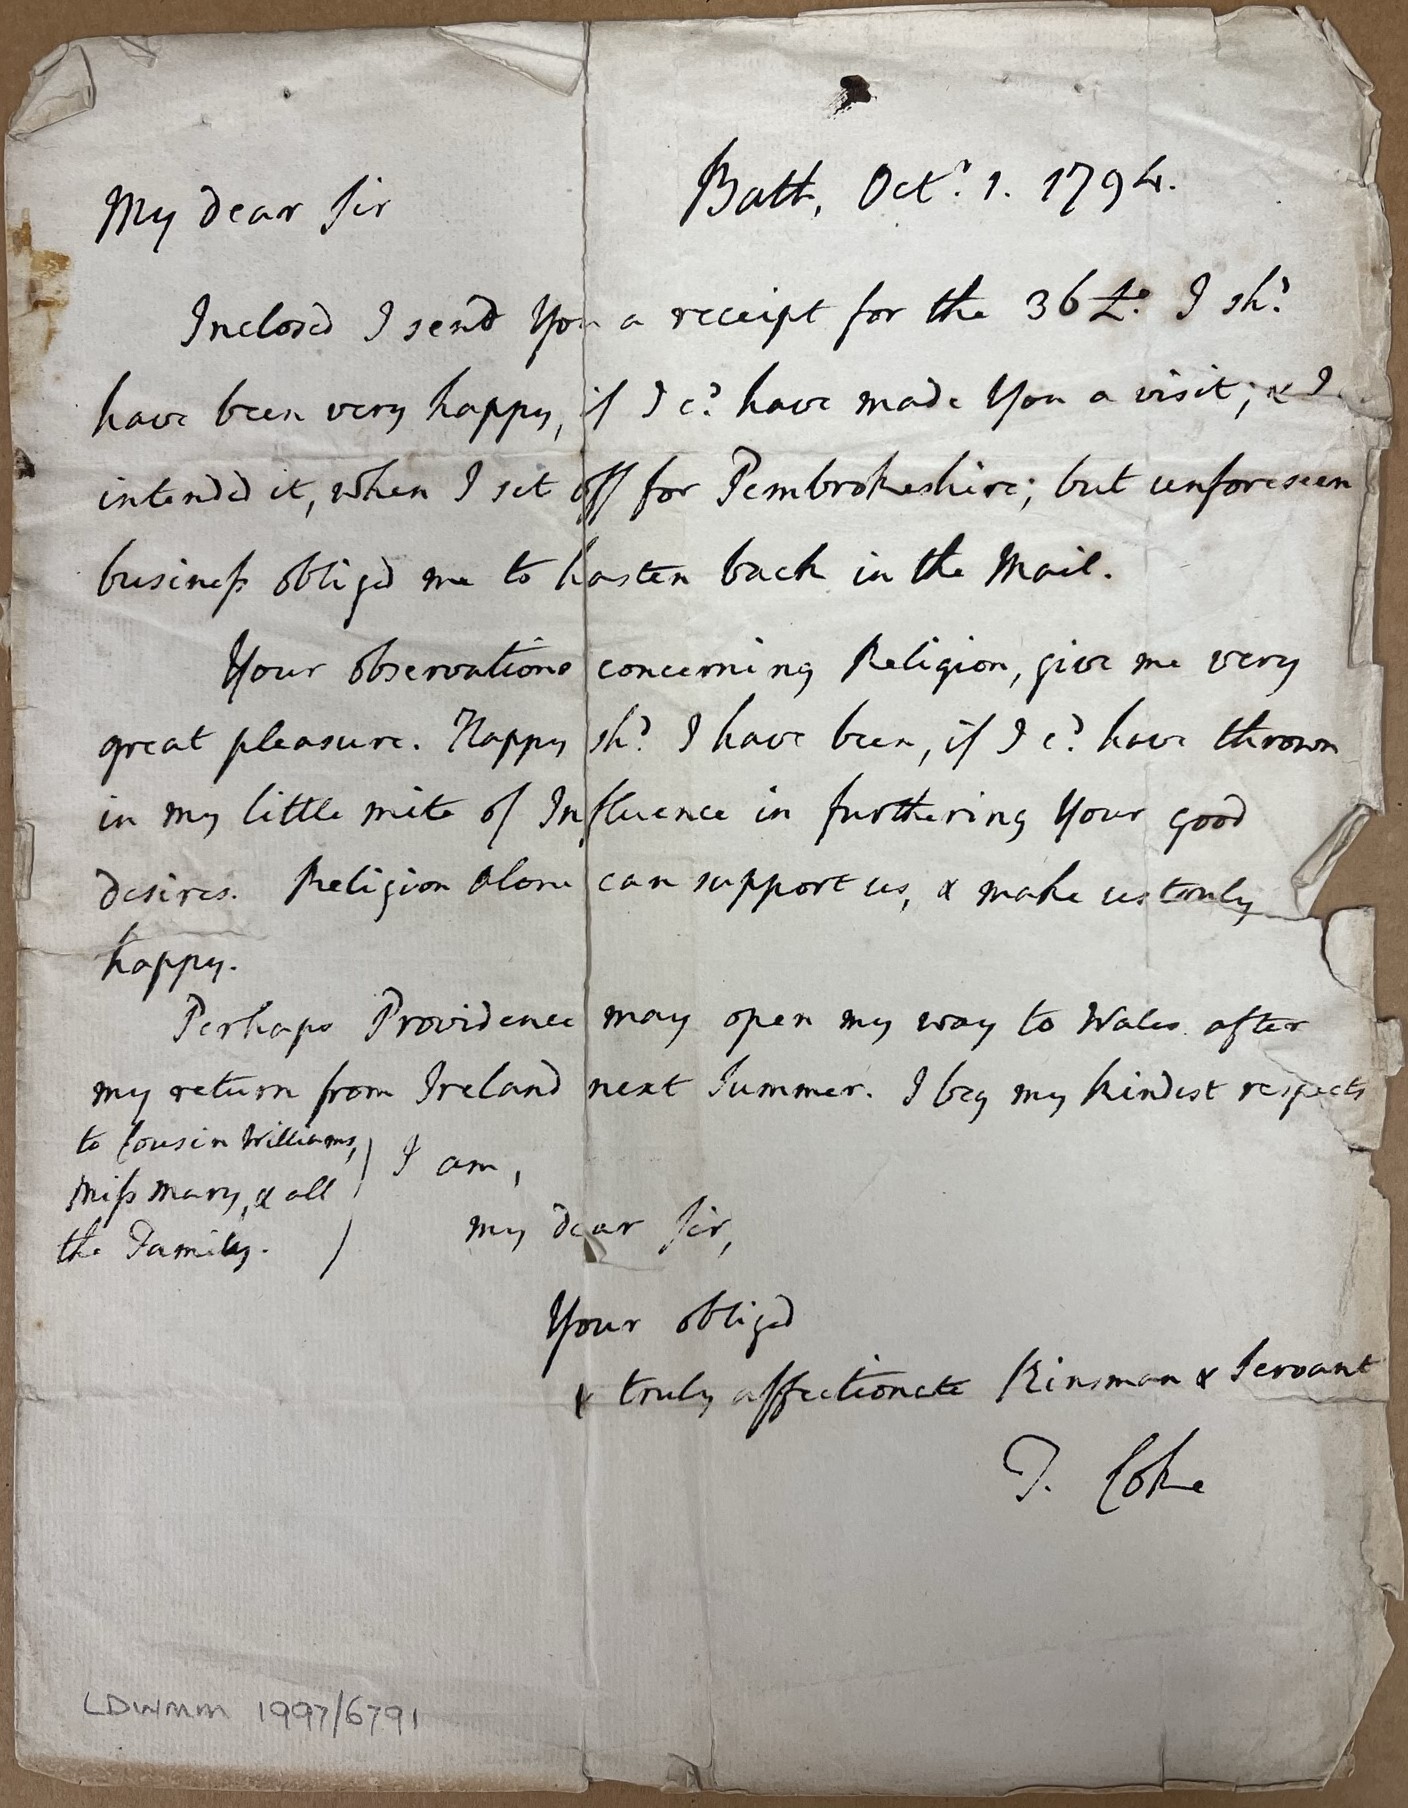 Bath, Octr. 1. 1794.
My dear Sir
Inclosed I send You a receipt for the 36 £. I shd.
have been very happy, if I cd. have made You a visit; & I
intended it, when I set off for Pembrokeshire; but unforeseen
business obliged me to hasten back in the Mail.
Your observations concerning Religion, give me very
great pleasure. Happy shd. I have been, if I cd. have thrown
in my little mite of Influence in furthering Your good
desires. Religion alone can support us, & make us truly
happy.
Perhaps Providence may open my way to Wales after
my return from Ireland next Summer. I beg my kindest respects
to Cousin Williams,
Miss Mary, & all
the Family.
I am,
my dear Sir,
Your obliged
& truly affectionate Kinsman & Servant
T. Coke
LDWMM 1997/6791